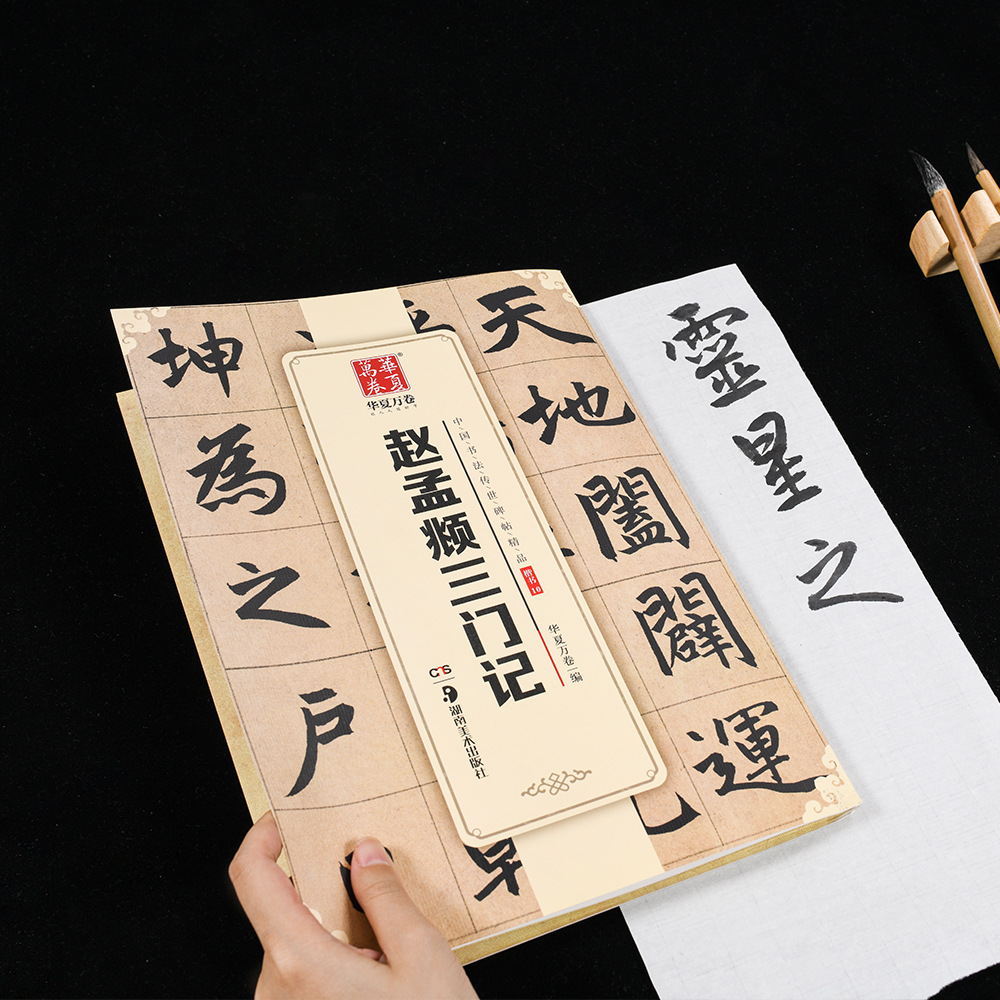 華夏
萬卷
®
华夏万卷
中国书法传世碑帖精品
楷书
10
赵孟頫三门记
华夏万卷 编
CTS
湖南美术出版社
天地闔闢運
坤為之户
靈星之